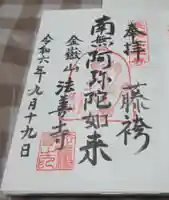 奉拝
藤袴
南無阿弥陀如来
金嶽山 法善寺
令和六年九月十九日